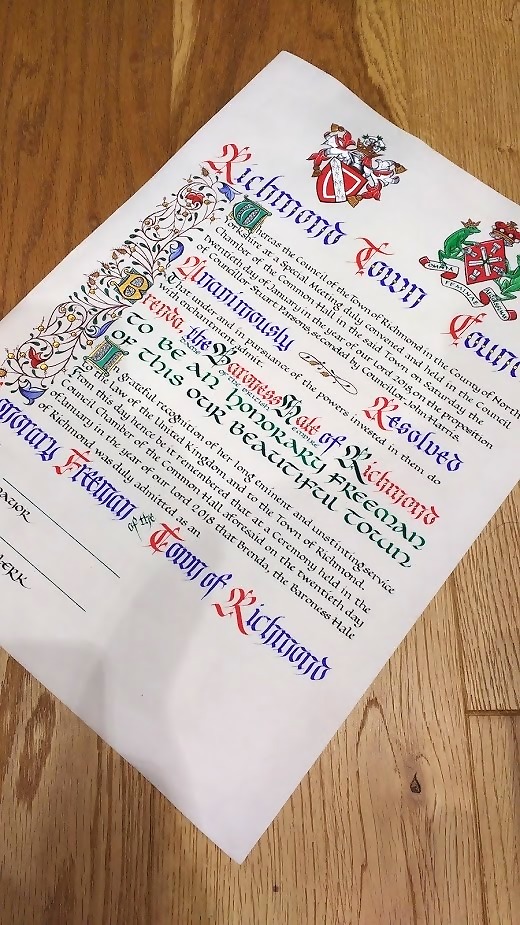 Richmond Town Counc
Whereas the Council of the Town of Richmond in the County of North
Yorkshire at a Special Meeting duly convened and held in the Council
Chamber of the Common Hall in the said Town on Saturday the
Twentieth day of January in the year of our lord 2018 on the proposition
of Councillor Stuart Parsons, seconded by Councillor John Harris.
Unanimously Resolved
That under and in pursuance of the powers invested in them do
with enchantment admit
Brenda, the Baroness Hale of Richmond
TO BE AN HONORARY FREEMAN
OF THIS OUR BEAUTIFUL TOWN
In grateful recognition of her long eminent and unstinting service
to the law of the United Kingdom and to the Town of Richmond.
From this day hence be it remembered that at a Ceremony held in the
Council Chamber of the Common Hall aforesaid on the twentieth day
of January in the year of our lord 2018 that Brenda, the Baroness Hale
of Richmond was duly admitted as an
onorary Freeman of the Town of Richmond
MAYOR
CLERK